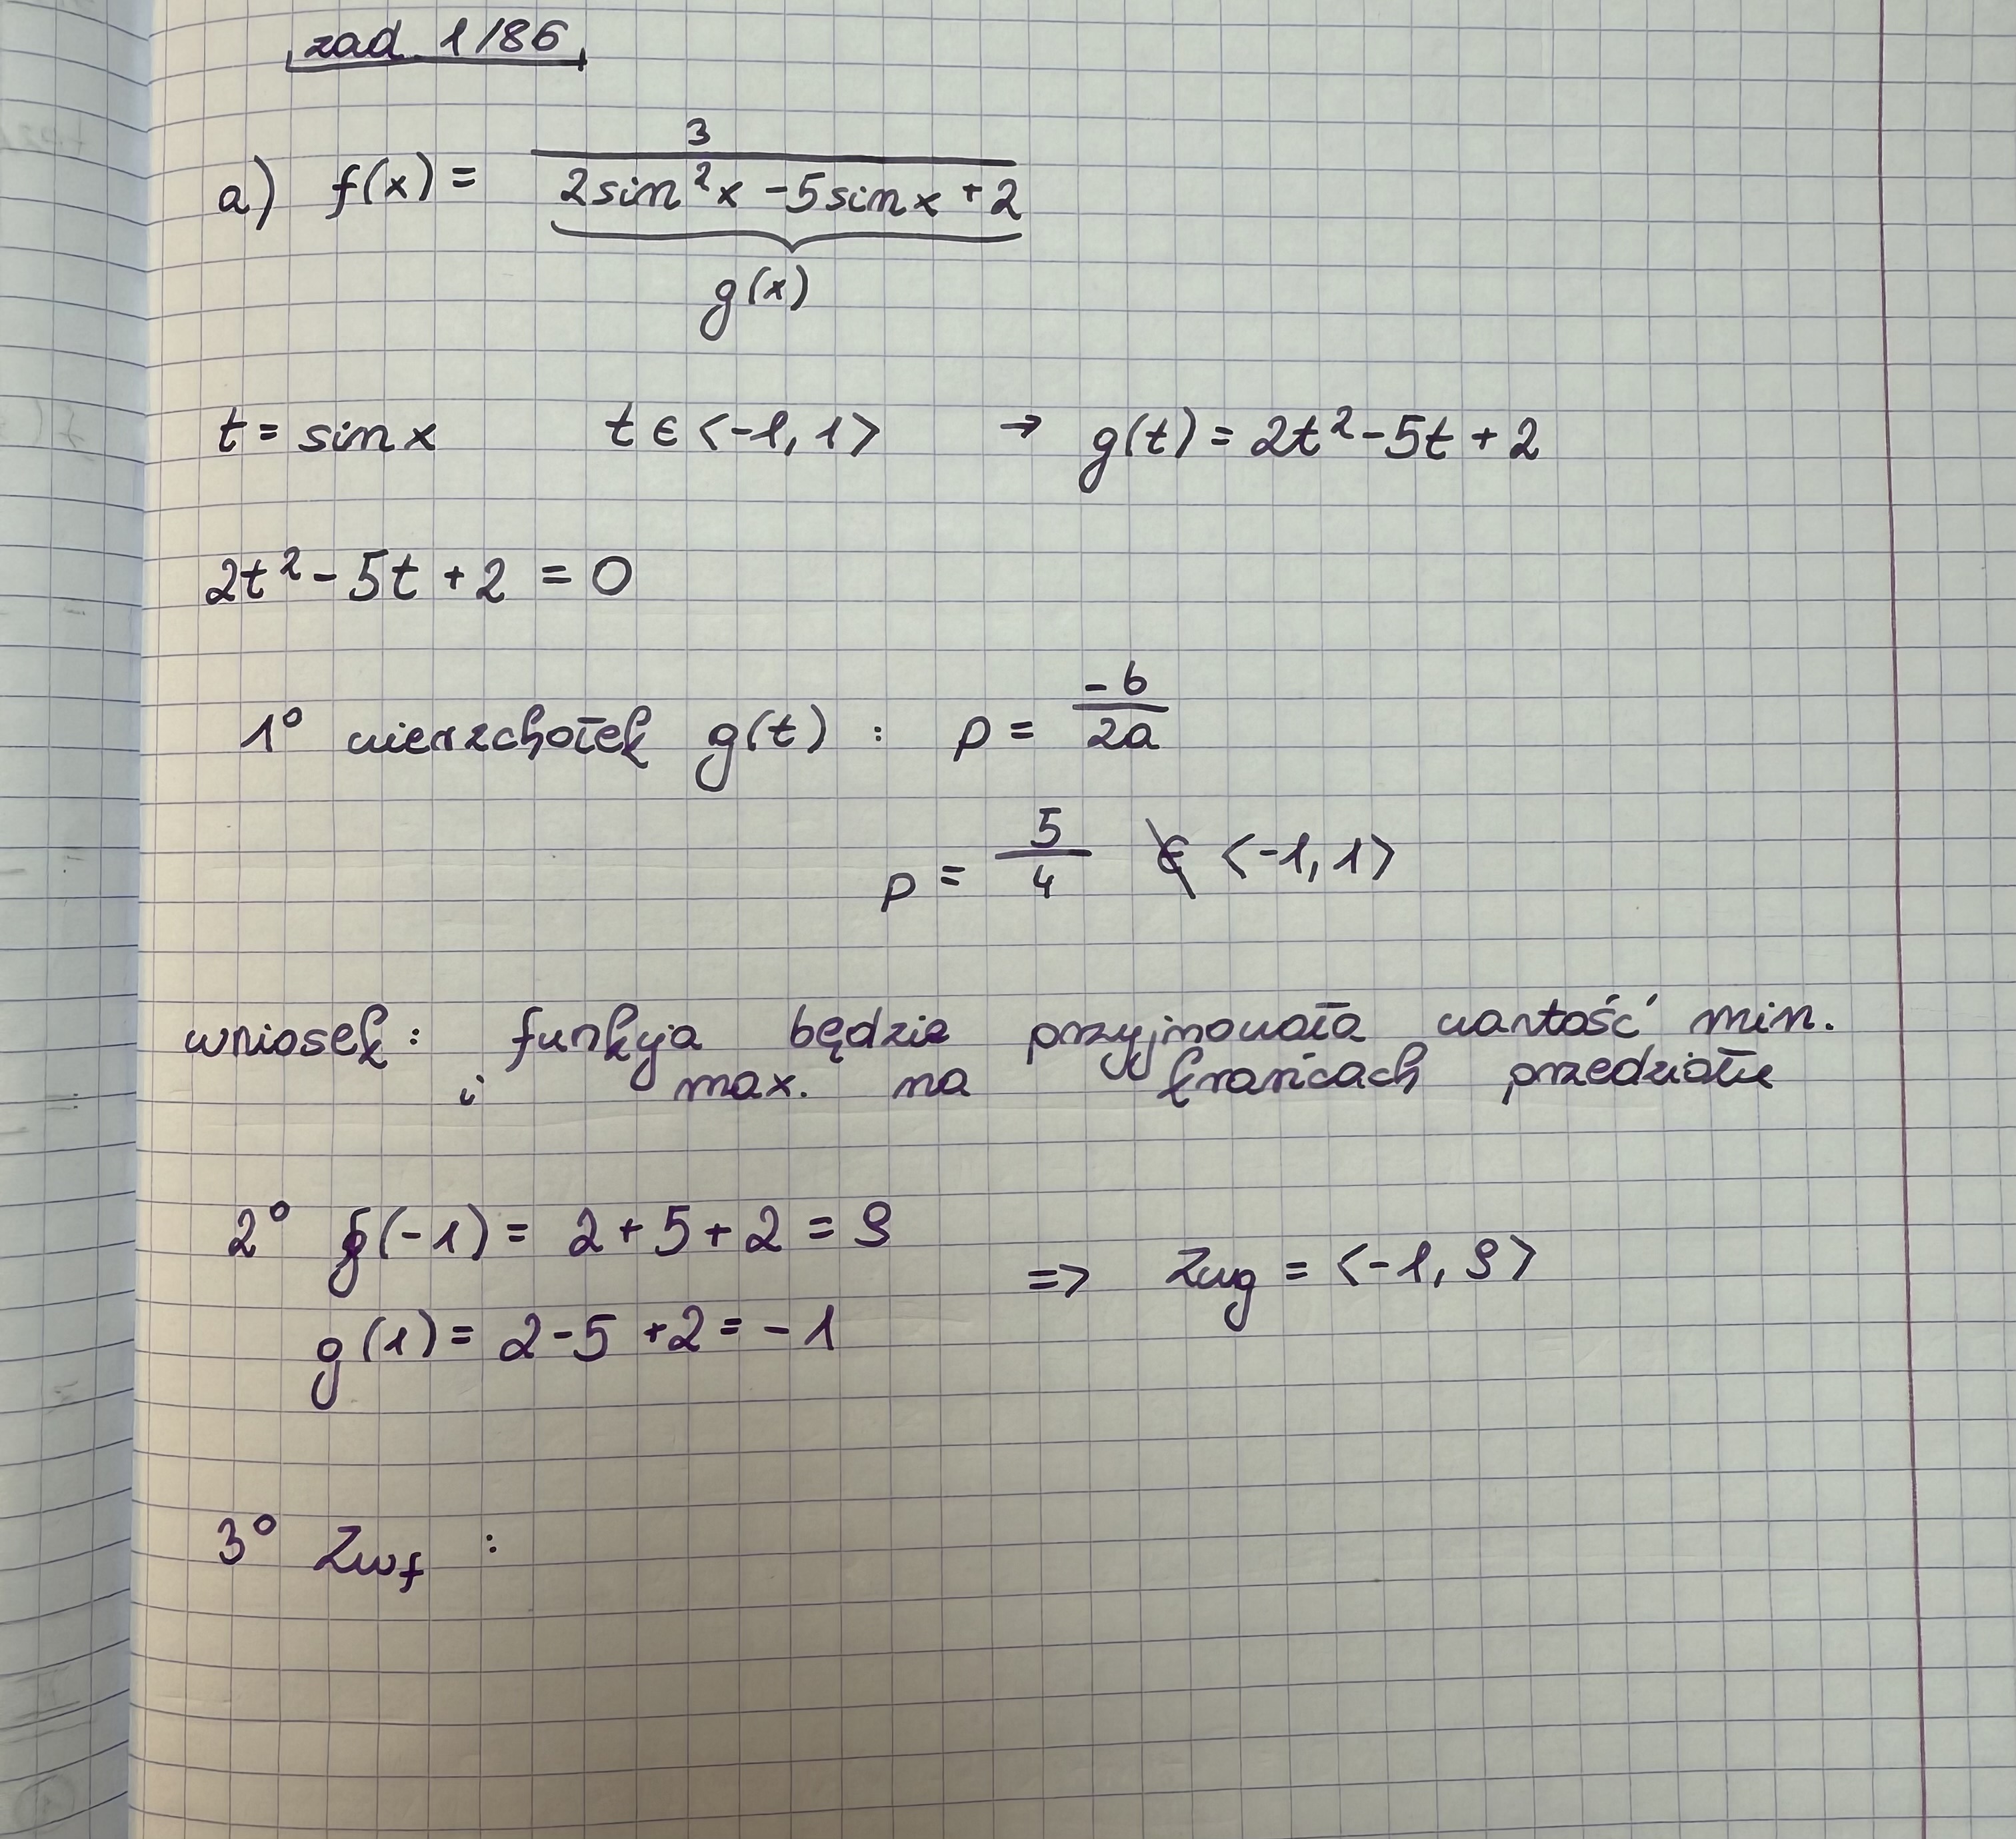 zad. 1/86
a) f(x) = 3 / (2sin²x - 5sinx + 2)
g(x)
t = sin x t ∈ <-1, 1> → g(t) = 2t² - 5t + 2
2t² - 5t + 2 = 0
1° wierzchołek g(t) : p = -b / 2a
p = 5/4 ∉ <-1, 1>
wniosek: funkcja będzie przyjmowała wartość min.
i max. na krańcach przedziału
2° g(-1) = 2 + 5 + 2 = 9
g(1) = 2 - 5 + 2 = -1 => Zwg = <-1, 9>
3° Zwf :